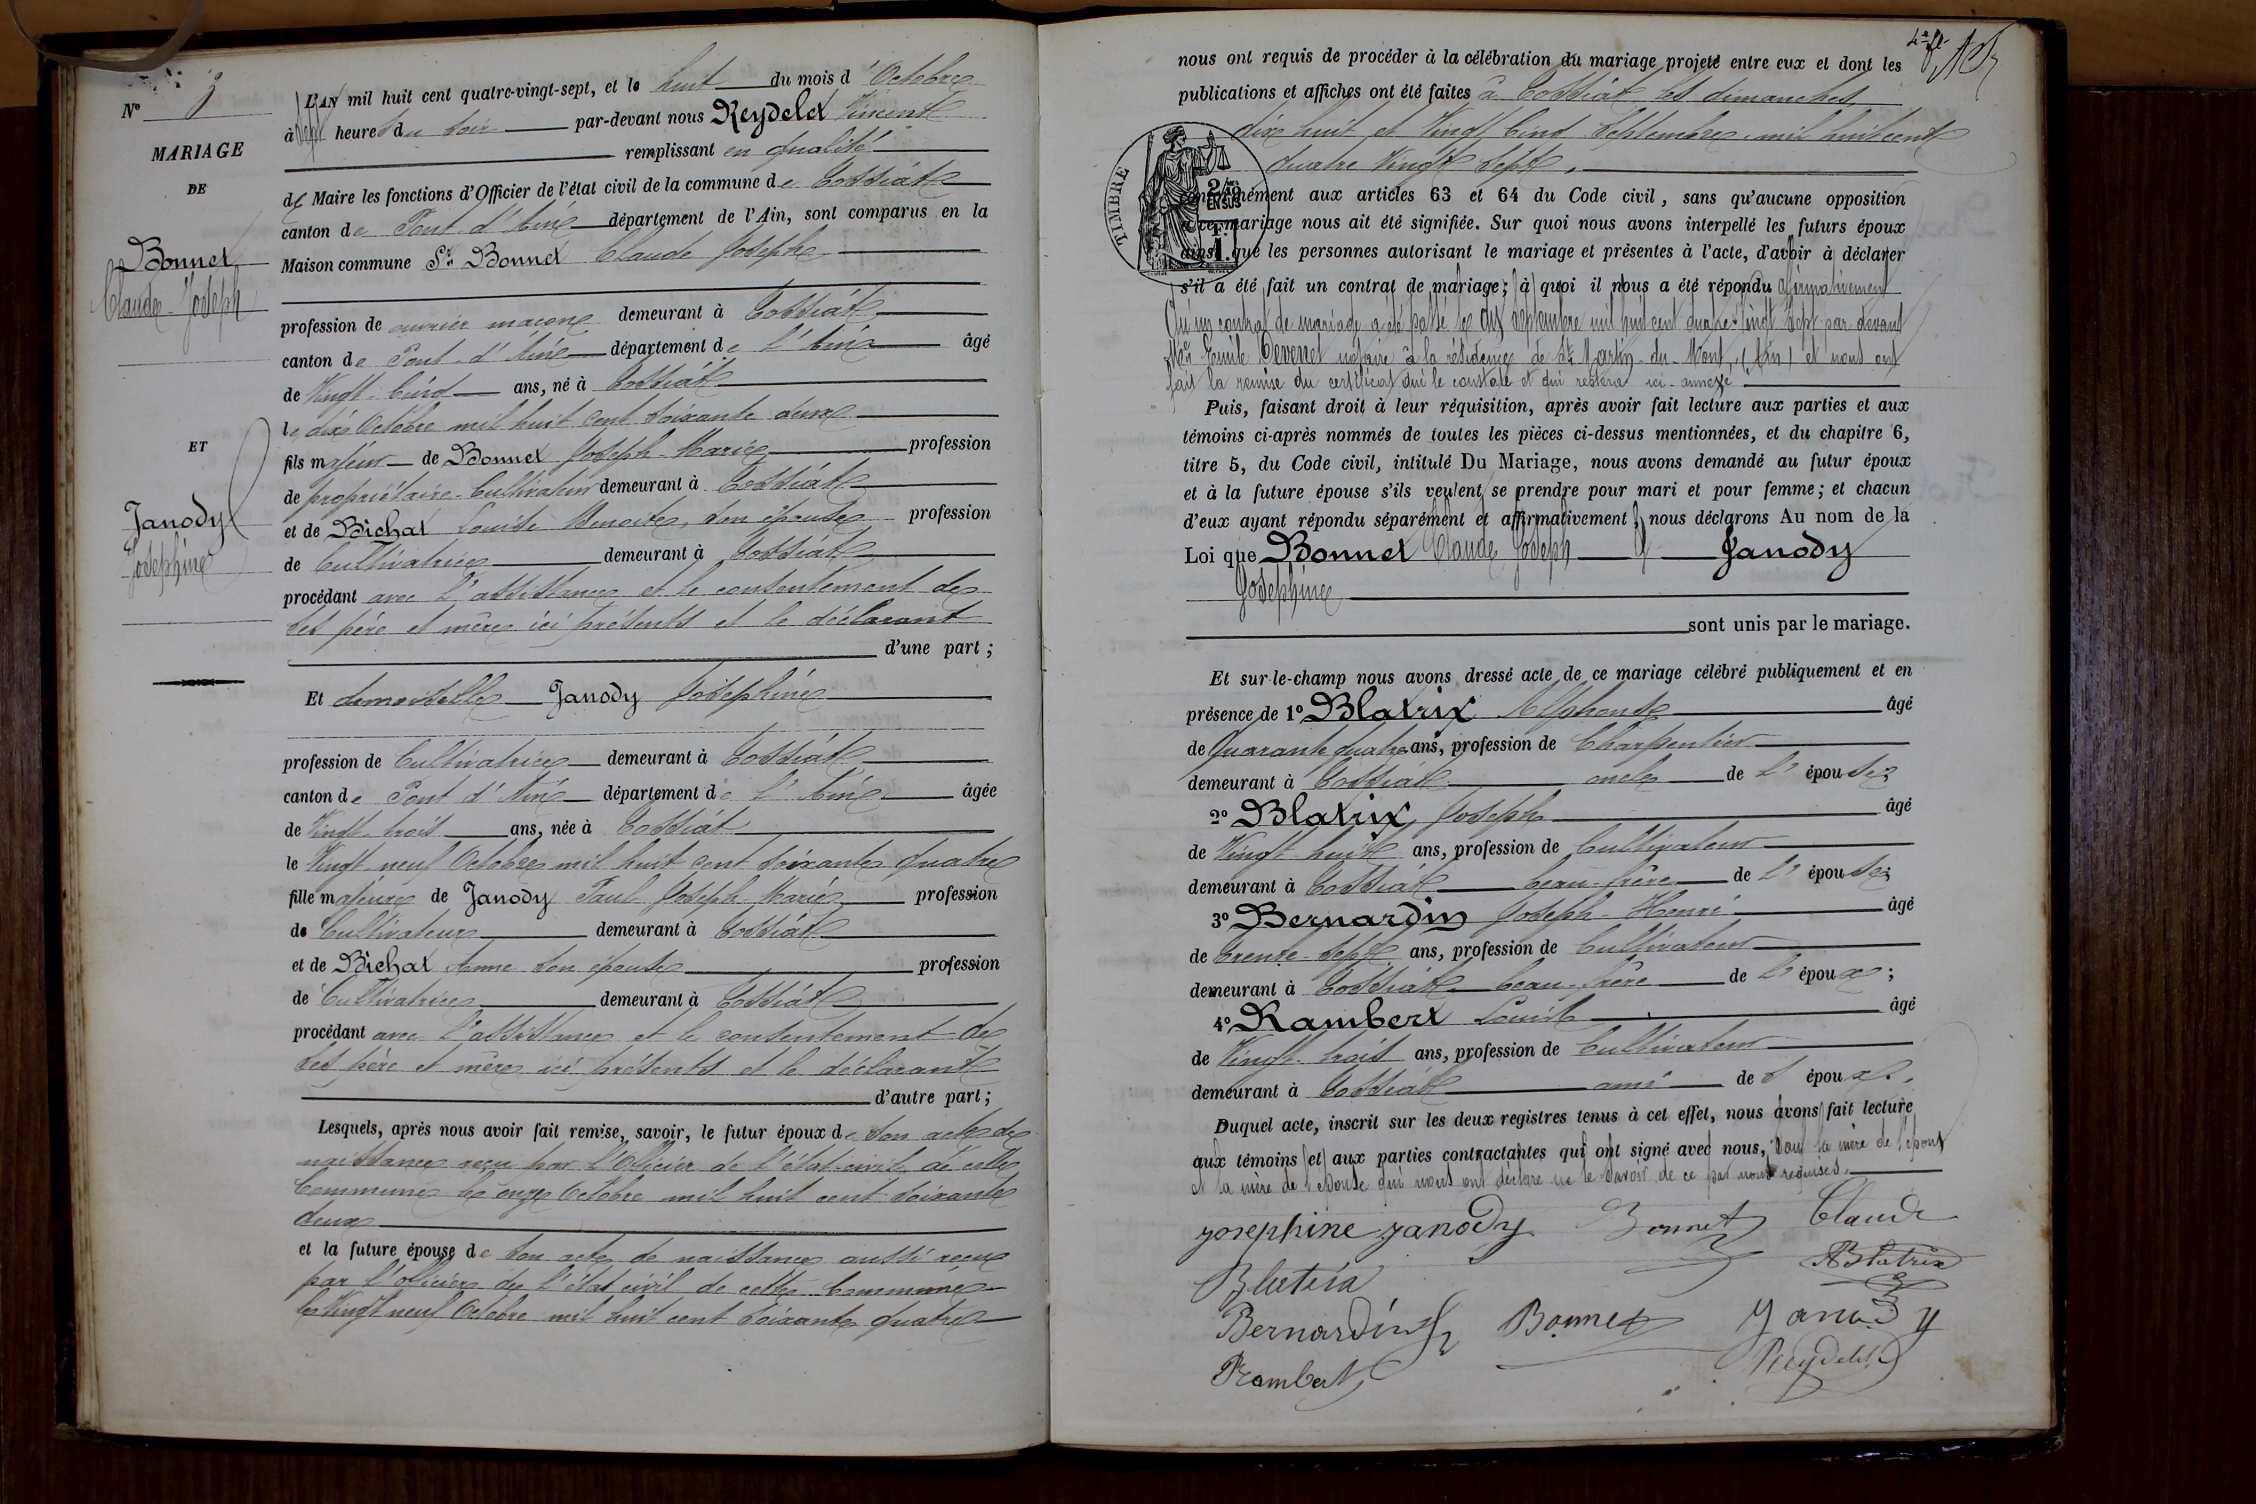 N° 3
MARIAGE
DE
Bonnet
Claude-Joseph
ET
Janody
Joséphine
L'AN mil huit cent quatre-vingt-sept, et le huit du mois d'Octobre
à sept heures du soir par-devant nous Reydelet Vincent
remplissant en qualité
de Maire les fonctions d'Officier de l'état civil de la commune de Tossiat
canton de Pont d'Ain département de l'Ain, sont comparus en la
Maison commune Sr Bonnet Claude Joseph
profession de ouvrier maçon demeurant à Tossiat
canton de Pont d'Ain département de l'Ain âgé
de Vingt-cinq ans, né à Tossiat
le dix Octobre mil huit cent soixante deux
fils majeur de Bonnet Joseph-Marie profession
de propriétaire-Cultivateur demeurant à Tossiat
et de Bichat Louise Benoite, son épouse profession
de Cultivatrice demeurant à Tossiat
procédant avec l'assistance et le consentement de
ses père et mère ici présents et le déclarant
d'une part ;
Et demoiselle Janody Joséphine
profession de Cultivatrice demeurant à Tossiat
canton de Pont d'Ain département de l'Ain âgée
de Vingt-trois ans, née à Tossiat
le Vingt neuf Octobre mil huit cent soixante quatre
fille majeure de Janody Paul Joseph Marie profession
de Cultivateur demeurant à Tossiat
et de Bichat Anne son épouse profession
de Cultivatrice demeurant à Tossiat
procédant avec l'assistance et le consentement de
ses père et mère ici présents et le déclarant
d'autre part ;
Lesquels, après nous avoir fait remise, savoir, le futur époux de son acte de
naissance reçu par l'officier de l'état-civil de cette
Commune le onze Octobre mil huit cent soixante
deux
et la future épouse de son acte de naissance aussi reçu
par l'officier de l'état civil de cette Commune
le Vingt neuf Octobre mil huit cent soixante quatre
nous ont requis de procéder à la célébration du mariage projeté entre eux et dont les
publications et affiches ont été faites à Tossiat les dimanches
dix huit et Vingt Cinq Septembre mil huit cent
quatre Vingt Sept.
TIMBRE
conformément aux articles 63 et 64 du Code civil, sans qu'aucune opposition
à ce mariage nous ait été signifiée. Sur quoi nous avons interpellé les futurs époux
ainsi que les personnes autorisant le mariage et présentes à l'acte, d'avoir à déclarer
s'il a été fait un contrat de mariage; à quoi il nous a été répondu affirmativement
Qu'un contrat de mariage a été passé le dix septembre mil huit cent quatre-Vingt Sept par-devant
Me Emile Devenet notaire à la résidence de St Martin-du-Mont, (Ain) et nous ont
fait la remise du certificat qui le constate et qui restera ici-annexé
Puis, faisant droit à leur réquisition, après avoir fait lecture aux parties et aux
témoins ci-après nommés de toutes les pièces ci-dessus mentionnées, et du chapitre 6,
titre 5, du Code civil, intitulé Du Mariage, nous avons demandé au futur époux
et à la future épouse s'ils veulent se prendre pour mari et pour femme ; et chacun
d'eux ayant répondu séparément et affirmativement, nous déclarons Au nom de la
Loi que Bonnet Claude Joseph et Janody
Joséphine
sont unis par le mariage.
Et sur-le-champ nous avons dressé acte de ce mariage célébré publiquement et en
présence de 1° Blatrix Alphonse âgé
de Quarante quatre ans, profession de Charpentier
demeurant à Tossiat oncle de l'épouse
2° Blatrix Joseph âgé
de Vingt-huit ans, profession de Cultivateur
demeurant à Tossiat beau-frère de l'épouse;
3° Bernardin Joseph-Henri âgé
de trente-Sept ans, profession de Cultivateur
demeurant à Tossiat beau-frère de l'époux ;
4° Rambert Louis âgé
de Vingt-trois ans, profession de Cultivateur
demeurant à Tossiat ami de l'époux.
Duquel acte, inscrit sur les deux registres tenus à cet effet, nous avons fait lecture
aux témoins et aux parties contractantes qui ont signé avec nous, sauf la mère de l'époux
et la mère de l'épouse qui nous ont déclaré ne le savoir de ce par nous requises.
Josephine Janody Bonnet Claude
Blatrix ABlatrix
Bernardin Bonnet Janody
Rambert Reydelet